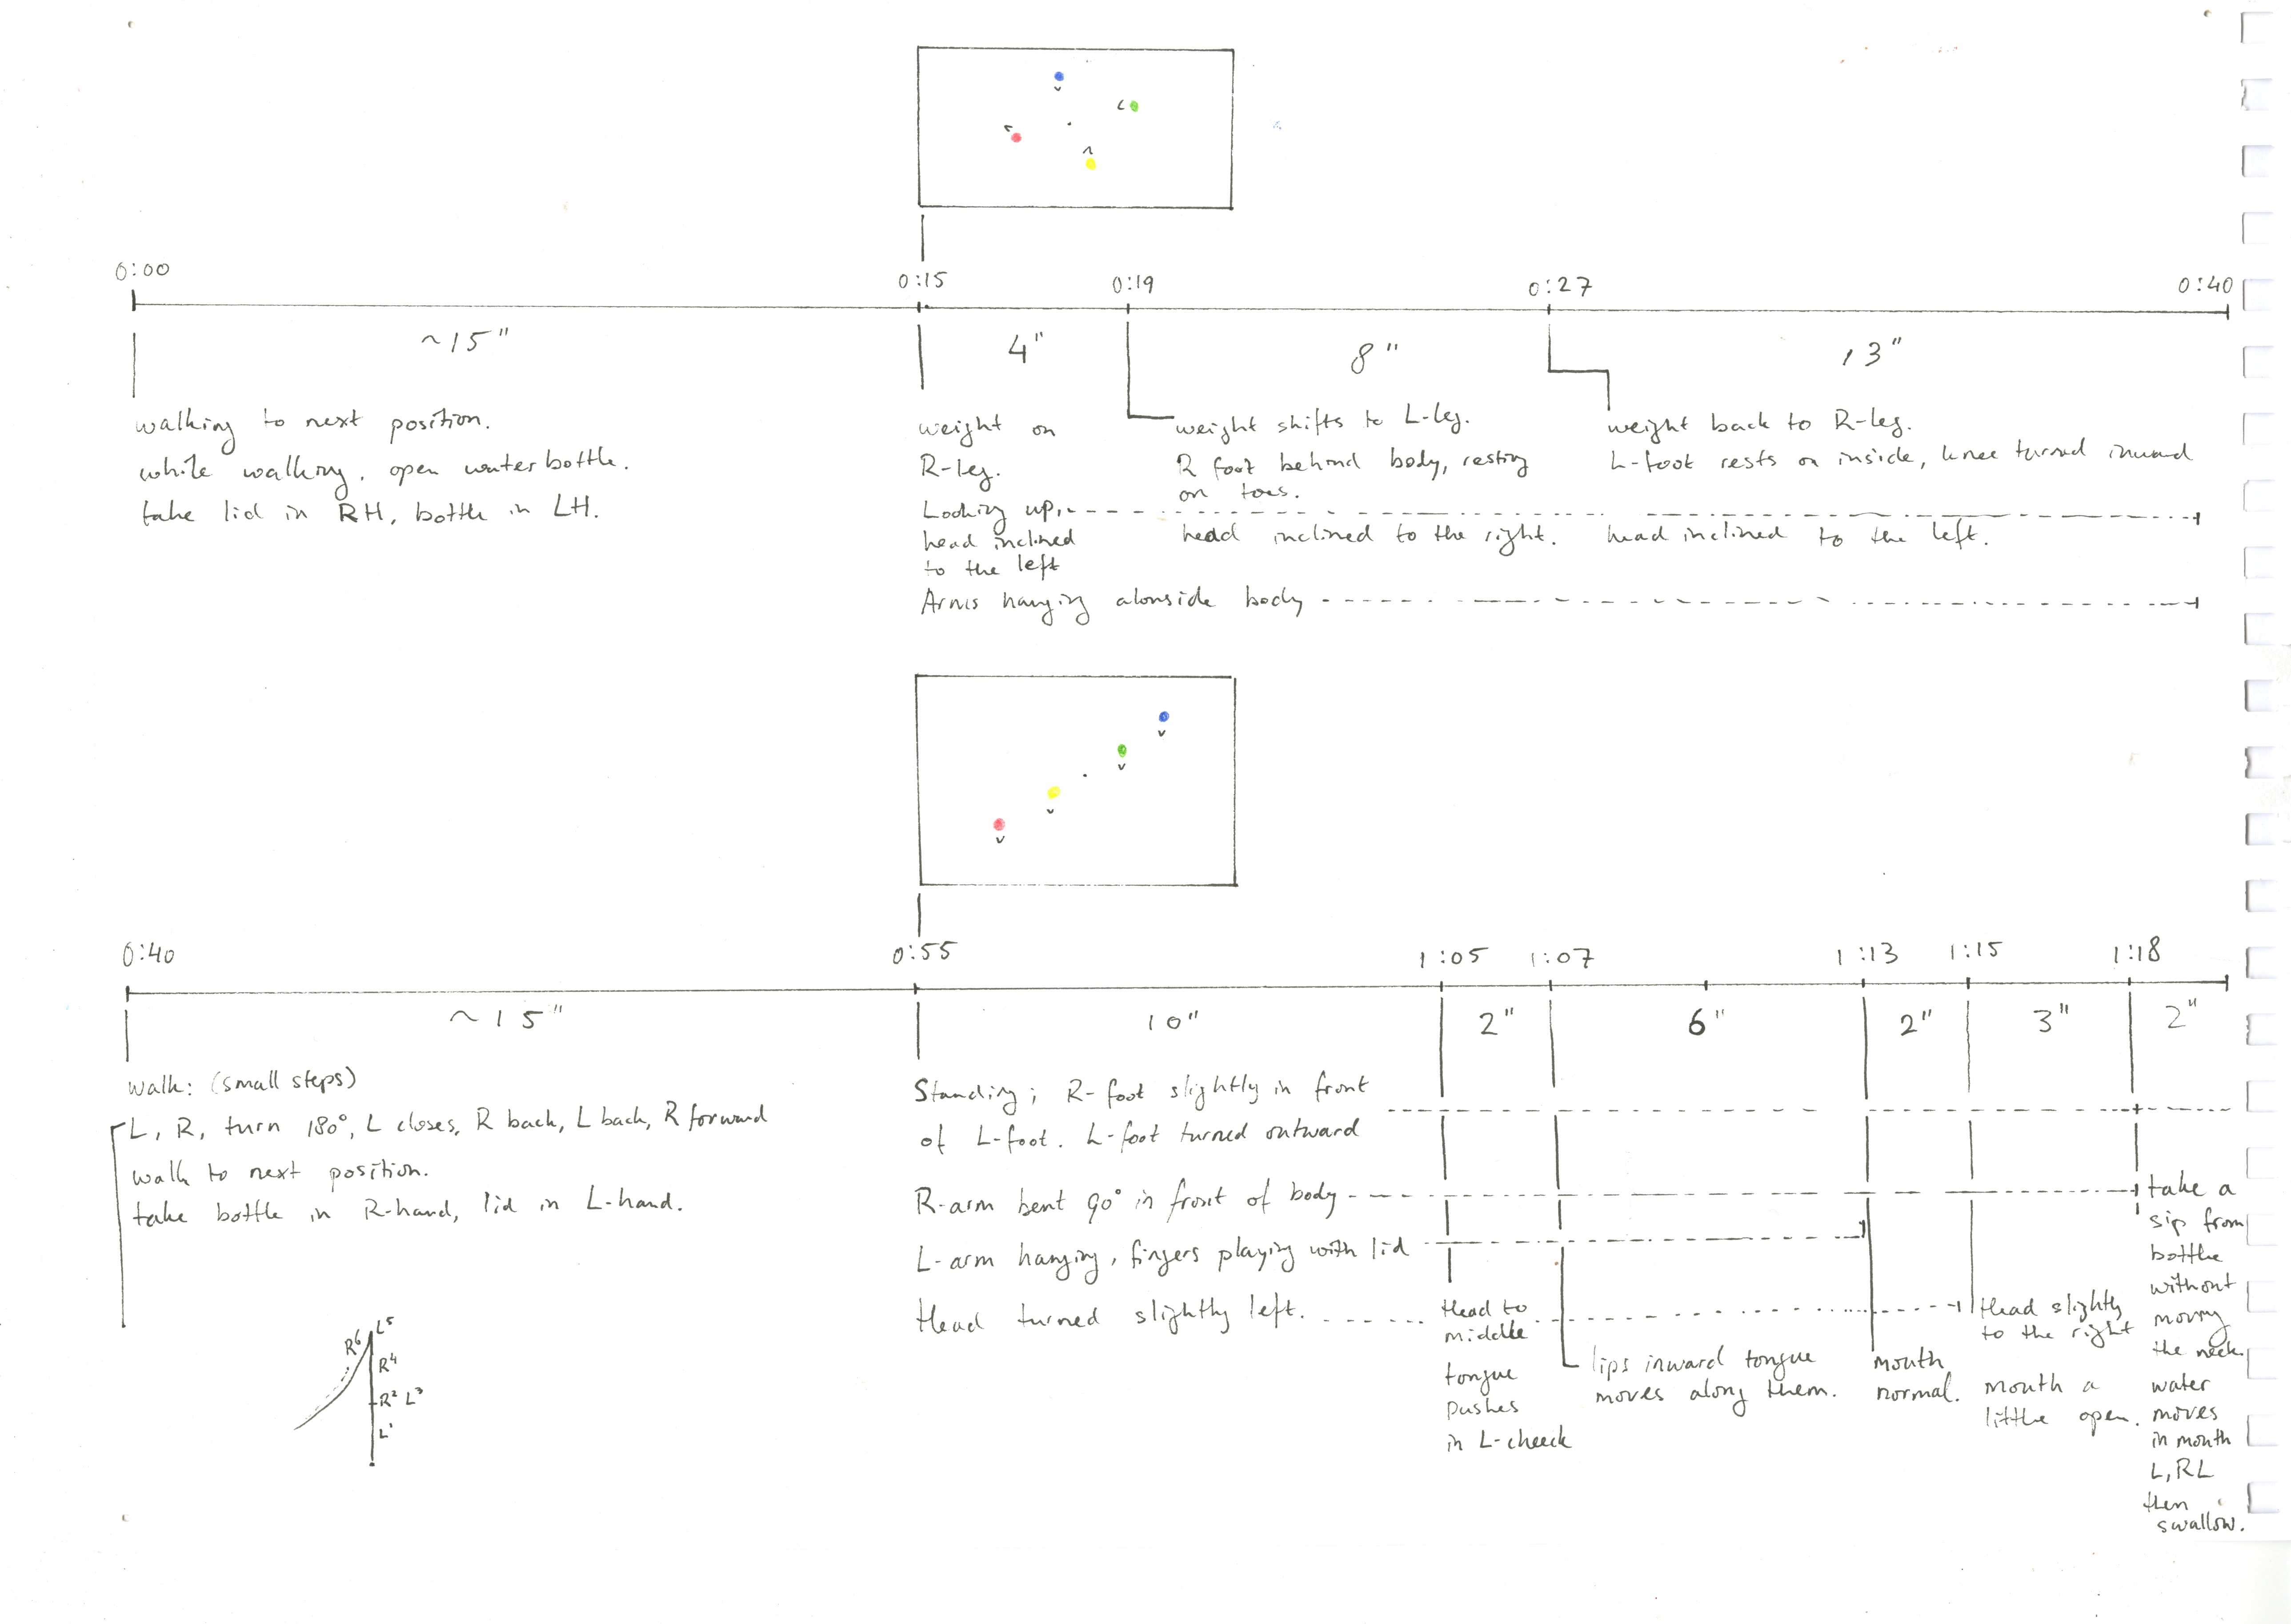 0:00
0:15
0:19
0:27
0:40
~15"
4"
8"
13"
walking to next position.
while walking, open waterbottle.
take lid in RH, bottle in LH.
weight on
R-leg.
Looking up,
head inclined
to the left
Arms hanging alonside body
weight shifts to L-leg.
R foot behind body, resting
on toes.
head inclined to the right.
weight back to R-leg.
L-foot rests on inside, knee turned inward
head inclined to the left.
0:40
0:55
1:05
1:07
1:13
1:15
1:18
~15"
10"
2"
6"
2"
3"
2"
walk: (small steps)
L, R, turn 180°, L closes, R back, L back, R forward
walk to next position.
take bottle in R-hand, lid in L-hand.
R6
L5
R4
R2 L3
L1
Standing; R-foot slightly in front
of L-foot. L-foot turned outward
R-arm bent 90° in front of body
L-arm hanging, fingers playing with lid
Head turned slightly left.
Head to
middle
tongue
pushes
in L-cheeck
lips inward tongue
moves along them.
mouth
normal.
Head slightly
to the right
mouth a
little open.
take a
sip from
bottle
without
moving
the neck.
water
moves
in mouth
L, RL
then
swallow.